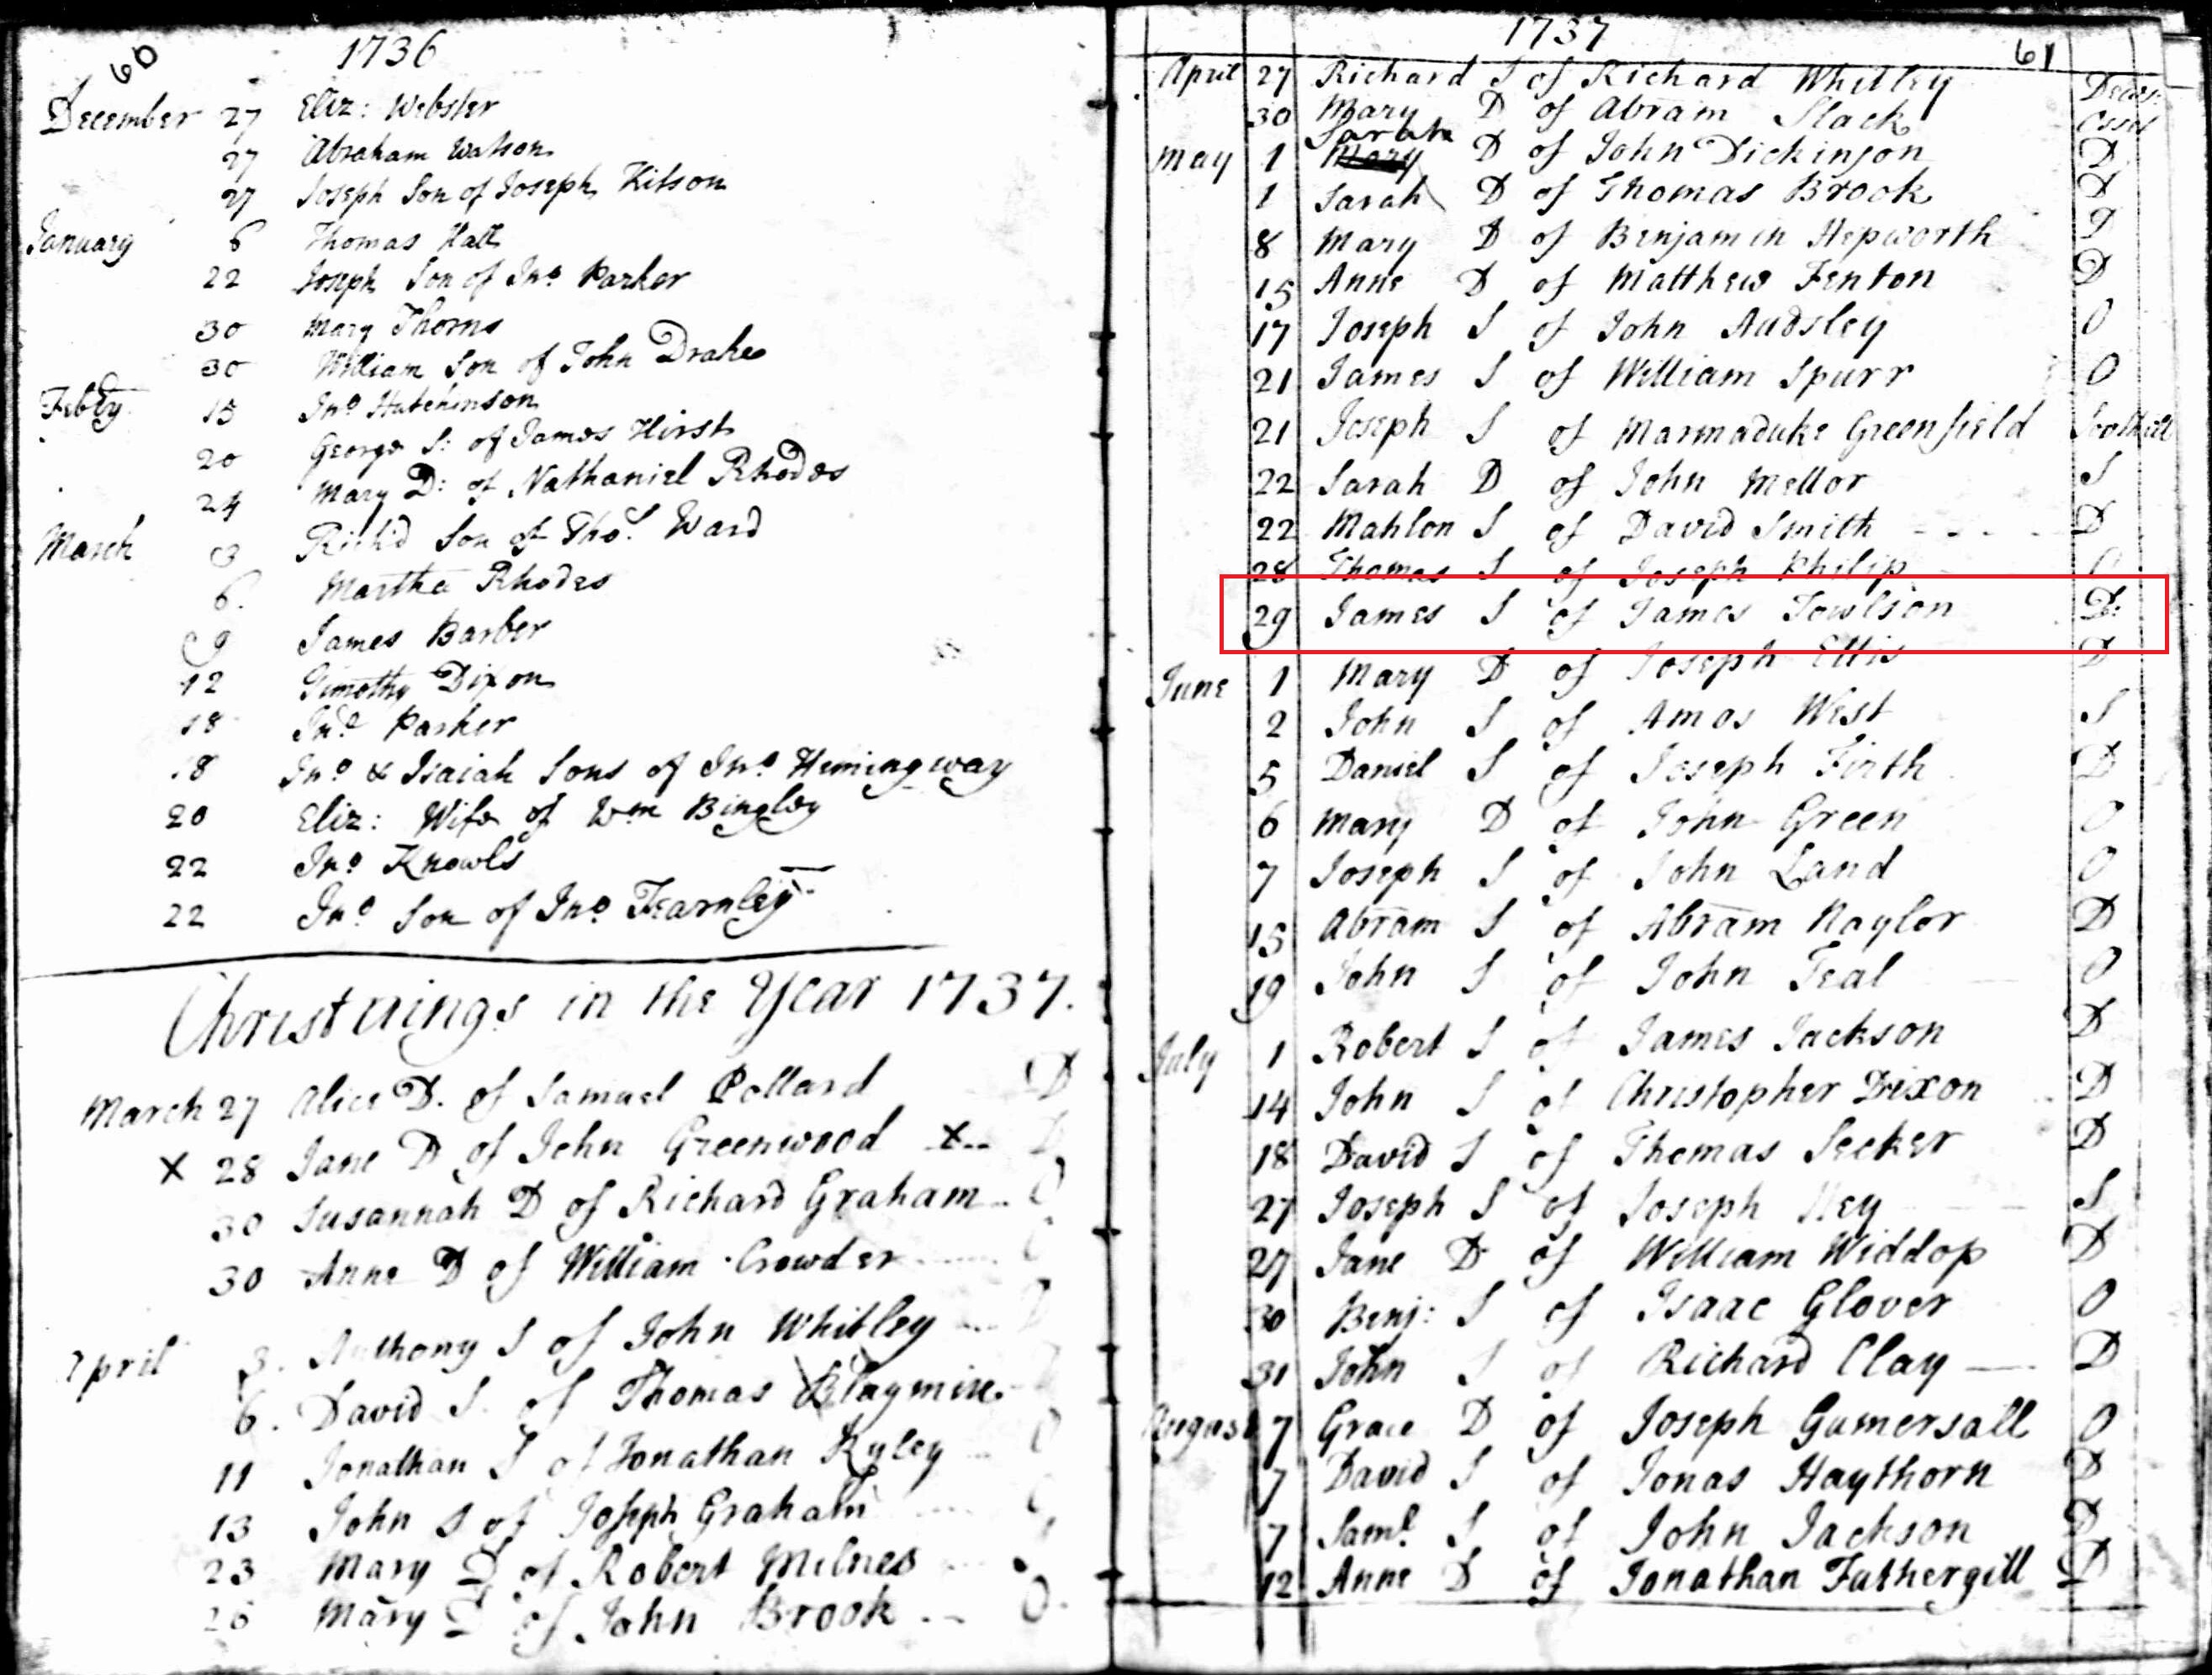 60
1736
December 27 Eliz: Webster
27 Abraham Watson
27 Joseph Son of Joseph Kitson
January 6 Thomas Hall
22 Joseph Son of Jno Parker
30 Mary Thorns
30 William Son of John Drake
Febry 15 Jno Hutchinson
20 George S: of James Hirst
24 Mary D: of Nathaniel Rhodes
March 3 Rich'd Son of Thos. Ward
6. Martha Rhodes
9 James Barber
12 Timothy Dixon
18 Jno Parker
18 Jno & Isaiah Sons of Jno Hemingway
20 Eliz: Wife of Wm Bingley
22 Jno Knowls
22 Jno Son of Jno Fearnley
Christnings in the Year 1737.
March 27 Alice D. of Samuel Pollard D
X 28 Jane D of John Greenwood x--
30 Susannah D of Richard Graham O
30 Anne D of William Crowder
April 3. Anthony S of John Whitley
6. David S. of Thomas
11 Jonathan S of Jonathan Ryley O
13 John S of Joseph Graham
23 Mary D of Robert Milnes
26 Mary D of John Brook O
1737
61
April 27 Richard S of Richard Whitley
30 Mary D of Abram Slack
Sarah
May 1 Mary D of John Dickinson D
1 Sarah D of Thomas Brook D
8 Mary D of Benjamin Hepworth D
15 Anne D of Matthew Fenton D
17 Joseph S of John Audsley O
21 James S of William Spurr O
21 Joseph S of Marmaduke Greenfield Soothill
22 Sarah D of John Mellor S
22 Mahlon S of David Smith - - - - D
28 Thomas S of Joseph Philip O
29 James S of James Towlson D:
June 1 Mary D of Joseph Ellis D
2 John S of Amos West S
5 Daniel S of Joseph Firth D
6 Mary D of John Green O
7 Joseph S of John Land O
15 Abram S of Abram Naylor D
19 John S of John Teal O
July 1 Robert S of James Jackson D
14 John S of Christopher Dixon D
18 David S of Thomas Secker D
27 Joseph S of Joseph Hey S
27 Jane D of William Widdop D
30 Benj: S of Isaac Glover O
31 John S of Richard Clay — D
August 7 Grace D of Joseph Gumersall O
7 David S of Jonas Haythorn D
7 Saml S of John Jackson D
12 Anne D of Jonathan Futhergill D